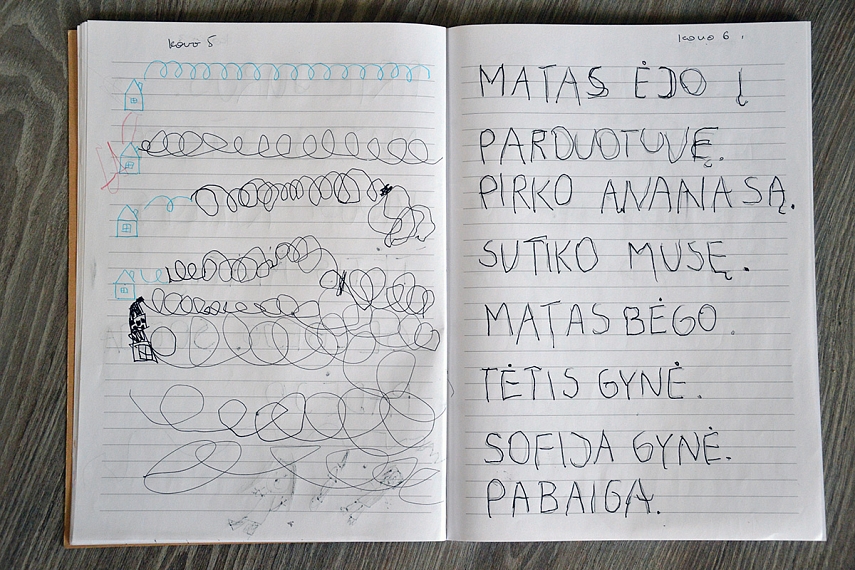 Kovo 5
Kovo 6
MATAS ĖJO Į
PARDUOTUVĘ.
PIRKO ANANASĄ.
SUTIKO MUSĘ.
MATAS BĖGO.
TĖTIS GYNĖ.
SOFIJA GYNĖ.
PABAIGA.